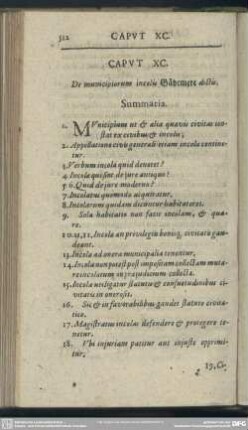 512 CAPVT XC.
CAPVT XC.
De municipiorum incolis dictis.
Summaria.
1. MVnicipium ut & alia quævis civitas constat
ex civibus & incolis;
2. Appellatione civis generali etiam incola continetur.
3. Verbum incola quid denotet?
4. Incola qui sint de jure antiquo?
5. 6. Quid de jure moderno?
7. Incolatus quomodo acquiratur.
8. Incolarum quidam dicuntur habitatores.
9. Sola habitatio non facit incolam, & quare.
10. 11. 12. Incola an privilegiis civitatis gaudeant.
13. Incola ad onera municipalia tenentur.
14. Incola non potest post impositam collectam mutare
incolatum in præjudicium collectæ.
15. Incola astringatur statutis & consuetudinibus civitatis
in onerosis.
16. Sic & in favorabilibus gaudet statuto civitatis.
17. Magistratus incolas defendere & protegere tenetur.
18. Vbi injuriam patitur aut injuste opprimitur,
19. Ci-